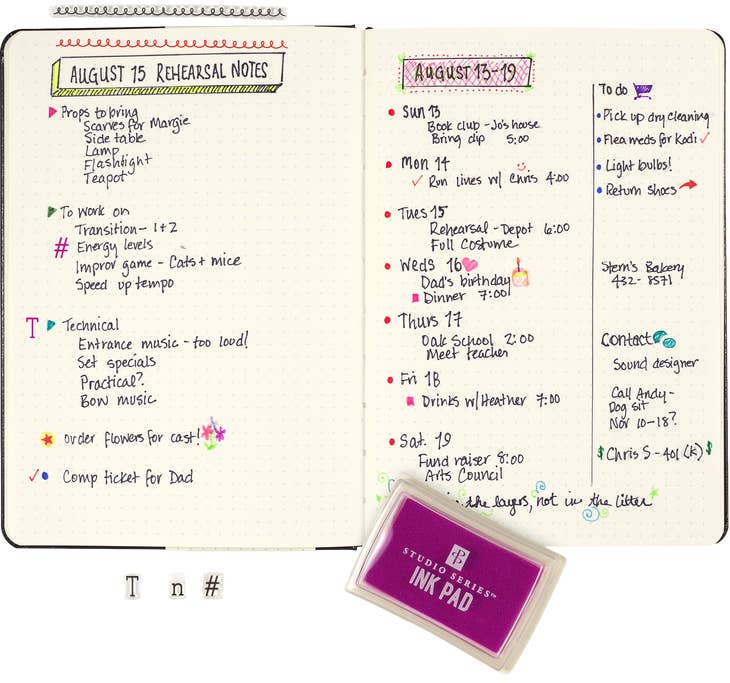 AUGUST 15 REHEARSAL NOTES
Props to bring
Scarves for Margie
Side table
Lamp
Flashlight
Teapot
To work on
Transition - 1+2
# Energy levels
Improv game - Cats + mice
Speed up tempo
T Technical
Entrance music - too loud!
Set specials
Practical?
Bow music
order flowers for cast!
Comp ticket for Dad
AUGUST 13-19
Sun 13
Book club - Jo's house
Bring dip 5:00
Mon 14
Run lines w/ Chris 4:00
Tues 15
Rehearsal - Depot 6:00
Full Costume
Weds 16
Dad's birthday
Dinner 7:00
Thurs 17
Oak School 2:00
Meet teacher
Fri 18
Drinks w/Heather 7:00
Sat. 19
Fund raiser 8:00
Arts Council
To do
Pick up dry cleaning
Flea meds for Kodi
Light bulbs!
Return Shoes
Stern's Bakery
432-8571
Contact
Sound designer
Call Andy -
Dog sit
Nov 10-18?
$ Chris S - 401(k) $
the layers, not in the litter
STUDIO SERIES™
INK PAD
T n #